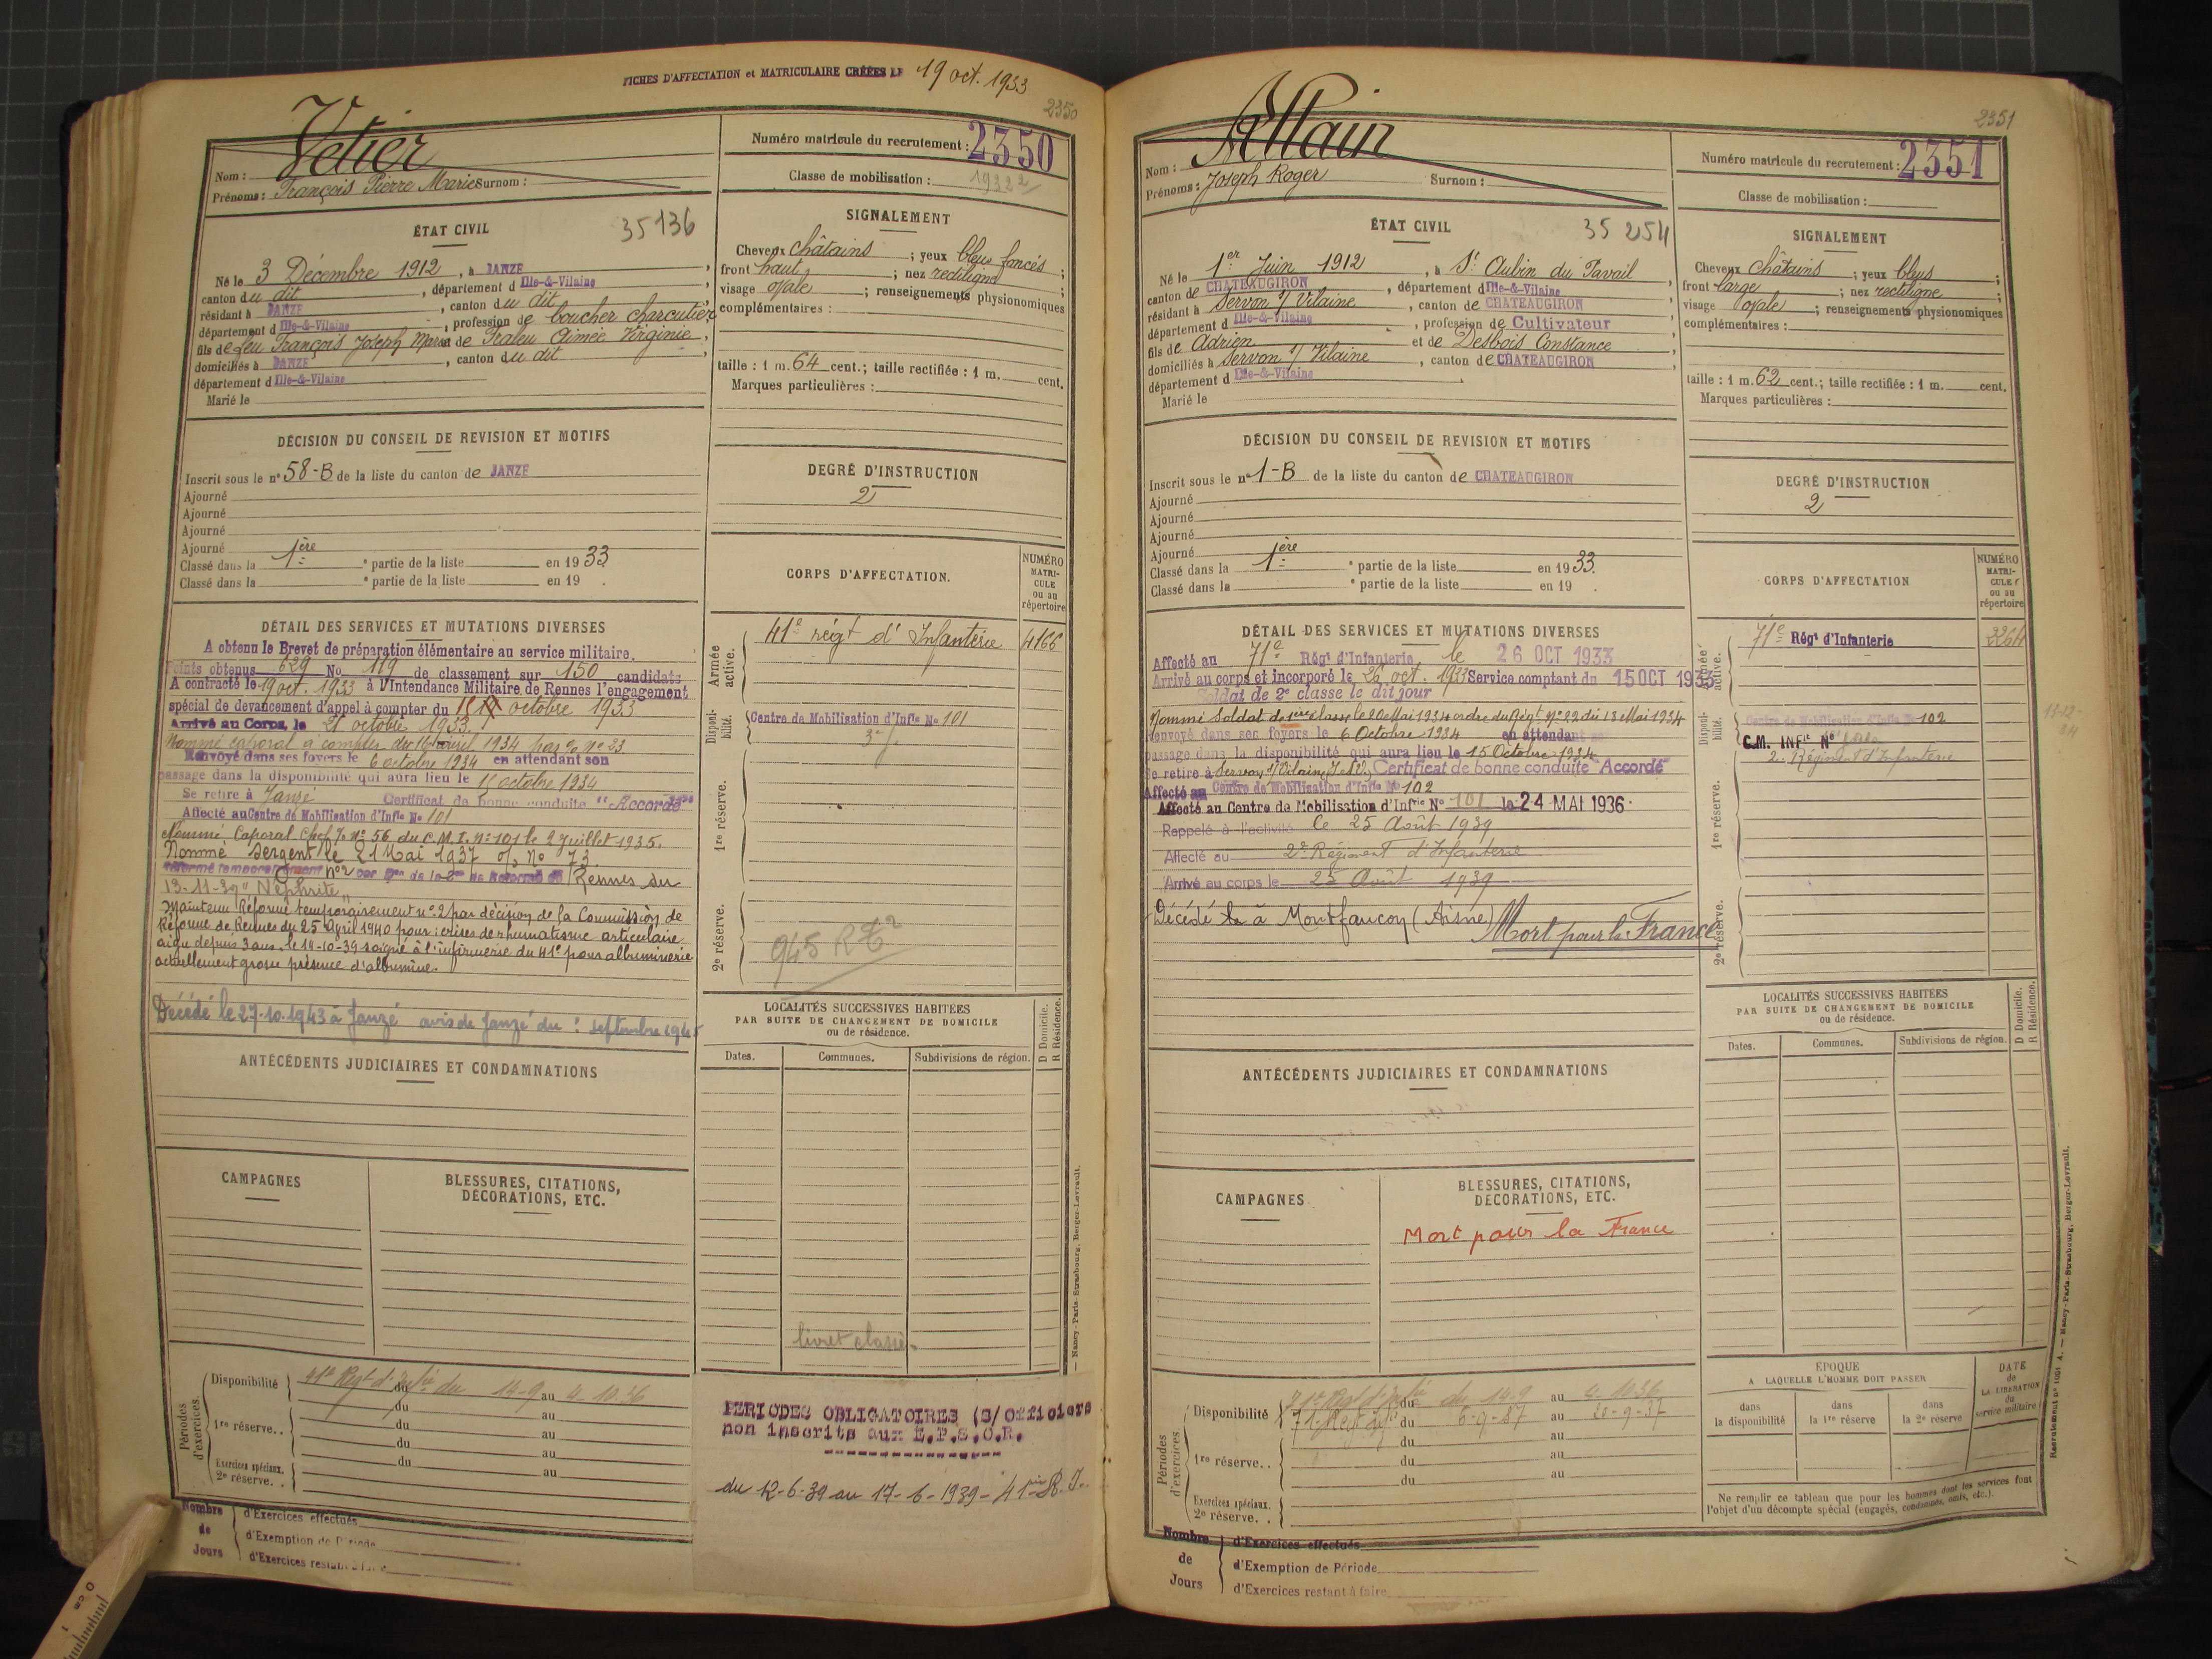 FICHES D'AFFECTATION et MATRICULAIRE CRÉÉES LE 19 oct. 1933
2350
Vetier
Nom :
Prénoms : François Pierre Marie Surnom :
Numéro matricule du recrutement : 2350
Classe de mobilisation : 1932
ÉTAT CIVIL
35136
Né le 3 Décembre 1912, à JANZE,
canton du dit, département d Ille-&-Vilaine
résidant à JANZE, canton du dit,
département d Ille-&-Vilaine, profession de boucher charcutier
fils de feu François Joseph Marie et de Tialeu Aimée Virginie,
domiciliés à JANZE, canton du dit,
département d Ille-&-Vilaine
Marié le
SIGNALEMENT
Cheveux châtains ; yeux bleus foncés ;
front haut ; nez rectiligne ;
visage ovale ; renseignements physionomiques
complémentaires :
taille : 1 m. 64 cent.; taille rectifiée : 1 m. cent.
Marques particulières :
DÉCISION DU CONSEIL DE REVISION ET MOTIFS
Inscrit sous le n° 58-B de la liste du canton de JANZE
Ajourné
Ajourné
Ajourné
Ajourné
Classé dans la 1ère partie de la liste en 1933
Classé dans la partie de la liste en 19 .
DEGRÉ D'INSTRUCTION
2
CORPS D'AFFECTATION.
NUMÉRO MATRI-CULE ou au répertoire
Armée active.
41e régt d'Infanterie 4166
Disponi-bilité.
Centre de Mobilisation d'Infie No 101
1re réserve.
2e réserve.
945
DÉTAIL DES SERVICES ET MUTATIONS DIVERSES
A obtenu le Brevet de préparation élémentaire au service militaire.
Points obtenus 629 No 119 de classement sur 150 candidats
A contracté le 19 oct. 1933 à l'Intendance Militaire de Rennes l'engagement
spécial de devancement d'appel à compter du octobre 1933
Arrivé au Corps, le 21 octobre 1933.
Nommé caporal à compter du 16 avril 1934 par No 23
Renvoyé dans ses foyers le 6 octobre 1934 en attendant son
passage dans la disponibilité qui aura lieu le 15 octobre 1934
Se retire à Janzé Certificat de bonne conduite "Accordé"
Affecté au Centre de Mobilisation d'Infie No 101
Nommé Caporal Chef No 56 du C.M.I. No 101 le 2 juillet 1935.
Nommé Sergent le 21 Mai 1937 No 73.
Réformé temporairement n°2 par de la de Réforme de Rennes du
13-11-39 "Néphrite"
Maintenu Réformé temporairement n°2 par décision de la Commission de
Réforme de Rennes du 25 Avril 1940 pour : crises de rhumatisme articulaire
aigu depuis 3 ans. le 14-10-39 soigné à l'infirmerie du 41e pour albuminerie
actuellement grosse présence d'albumine.
Décédé le 27.10.1943 à Janzé avis de Janzé du : septembre 1945
ANTÉCÉDENTS JUDICIAIRES ET CONDAMNATIONS
LOCALITÉS SUCCESSIVES HABITÉES
PAR SUITE DE CHANGEMENT DE DOMICILE
ou de résidence.
D Domicile.
R Résidence.
Dates. Communes. Subdivisions de région.
livret classé
CAMPAGNES
BLESSURES, CITATIONS,
DÉCORATIONS, ETC.
Périodes d'exercices
Disponibilité 41e Régt d'Infie du 14-9 au 4.10.36
du au
1re réserve. . du au
du au
Exercices spéciaux. du au
2e réserve. .
PERIODES OBLIGATOIRES (S/Officiers
non inscrits aux E.P.S.O.R.
du 12-6-39 au 17-6-1939 - 41 R.I.
Nombre de Jours
d'Exercices effectués
d'Exemption de Période
d'Exercices restant à faire
Nancy-Paris-Strasbourg, Berger-Levrault.
2351
Allain
Nom :
Prénoms : Joseph Roger Surnom :
Numéro matricule du recrutement : 2351
Classe de mobilisation :
ÉTAT CIVIL
35 254
Né le 1er Juin 1912, à St Aubin du Pavail
canton de CHATEAUGIRON, département d Ille-&-Vilaine
résidant à Servon s/ Vilaine, canton de CHATEAUGIRON
département d Ille-&-Vilaine, profession de Cultivateur
fils de Adrien et de Desbois Constance
domiciliés à Servon s/ Vilaine, canton de CHATEAUGIRON
département d Ille-&-Vilaine
Marié le
SIGNALEMENT
Cheveux châtains ; yeux bleus ;
front large ; nez rectiligne ;
visage ovale ; renseignements physionomiques
complémentaires :
taille : 1 m. 62 cent.; taille rectifiée : 1 m. cent.
Marques particulières :
DÉCISION DU CONSEIL DE REVISION ET MOTIFS
Inscrit sous le n° 1-B de la liste du canton de CHATEAUGIRON
Ajourné
Ajourné
Ajourné
Ajourné
Classé dans la 1ère partie de la liste en 1933.
Classé dans la partie de la liste en 19 .
DEGRÉ D'INSTRUCTION
2
CORPS D'AFFECTATION
NUMÉRO MATRI-CULE ou au répertoire
Armée active.
71e Régt d'Infanterie 3264
Disponi-bilité.
Centre de Mobilisation d'Infie No 102
C.M. INFie No
2e Régiment d'Infanterie
1re réserve.
2e réserve.
DÉTAIL DES SERVICES ET MUTATIONS DIVERSES
Affecté au 71e Régt d'Infanterie le 26 OCT 1933
Arrivé au corps et incorporé le 26 oct. 1933 Service comptant du 15 OCT 1933
Soldat de 2e classe le dit jour
Nommé Soldat de 1ère classe le 20 Mai 1934 ordre du Régt No 22 du 18 Mai 1934
Renvoyé dans ses foyers le 6 Octobre 1934 en attendant
passage dans la disponibilité qui aura lieu le 15 Octobre 1934
Se retire à Servon s/ Vilaine (I.&V.) Certificat de bonne conduite "Accordé"
Affecté au Centre de Mobilisation d'Infie No 102
Affecté au Centre de Mobilisation d'Infrie No 101 le 24 MAI 1936.
Rappelé à l'activité le 25 Août 1939
Affecté au 2e Régiment d'Infanterie
Arrivé au corps le 25 Août 1939
Décédé le à Montfaucon (Aisne) Mort pour la France
ANTÉCÉDENTS JUDICIAIRES ET CONDAMNATIONS
LOCALITÉS SUCCESSIVES HABITÉES
PAR SUITE DE CHANGEMENT DE DOMICILE
ou de résidence.
D Domicile.
R Résidence.
Dates. Communes. Subdivisions de région.
CAMPAGNES
BLESSURES, CITATIONS,
DÉCORATIONS, ETC.
Mort pour la France
Périodes d'exercices.
Disponibilité 71e Régt d'Infie du 14.9 au 4.10.36
71 Régt Infie du 6-9-37 au 20-9-37
1re réserve. . du au
du au
du au
Exercices spéciaux.
2e réserve. .
ÉPOQUE
A LAQUELLE L'HOMME DOIT PASSER
dans la disponibilité
dans la 1re réserve
dans la 2e réserve
DATE de LA LIBÉRATION du service militaire
Ne remplir ce tableau que pour les hommes dont les services font
l'objet d'un décompte spécial (engagés, condamnés, omis, etc.).
Nombre de Jours
d'Exercices effectués
d'Exemption de Période
d'Exercices restant à faire
Recrutement N° 1001 A. — Nancy-Paris-Strasbourg, Berger-Levrault.
0 cm 1